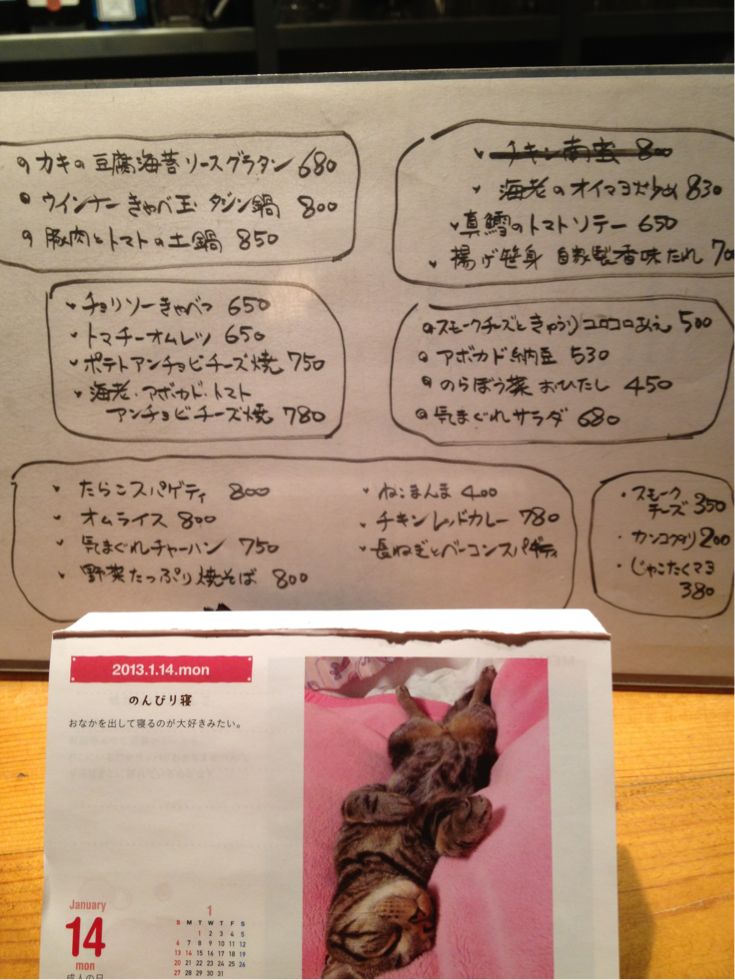 カキの豆腐海苔ソースグラタン 680
ウインナーきゃべ玉 タジン鍋 800
豚肉とトマトの土鍋 850
チキン南蛮 800
海老のオイマヨ炒め 830
真鱈のトマトソテー 650
揚げ笹身 自家製香味たれ 70
チョリソーきゃべつ 650
トマチーオムレツ 650
ポテトアンチョビチーズ焼 750
海老・アボカド・トマト
アンチョビチーズ焼 780
スモークチーズときゅうりコロコロあえ 500
アボカド納豆 530
のらぼう菜 おひたし 450
気まぐれサラダ 680
たらこスパゲティ 800
オムライス 800
気まぐれチャーハン 750
野菜たっぷり焼そば 800
ねこまんま 400
チキンレッドカレー 780
長ねぎとベーコンスパゲティ
・スモーク
チーズ 350
・カンコウタリ 200
・じゃこたくマヨ
380
2013.1.14.mon
のんびり寝
おなかを出して寝るのが大好きみたい。
January
14
mon
成人の日
1
S M T W T F S
1 2 3 4 5
6 7 8 9 10 11 12
13 14 15 16 17 18 19
20 21 22 23 24 25 26
27 28 29 30 31